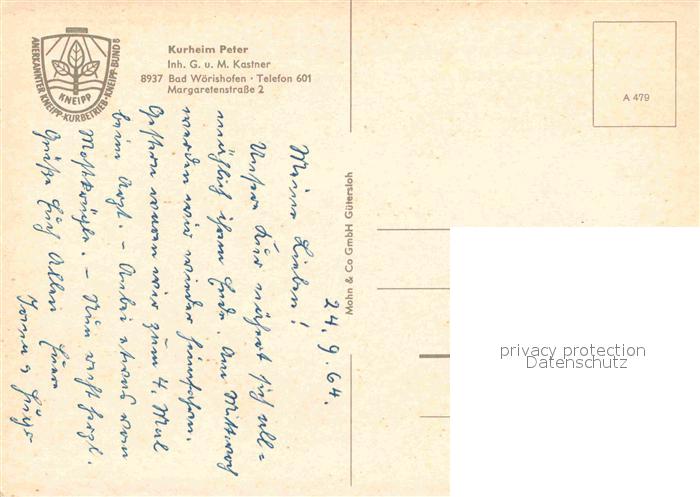 ANERKANNTER KNEIPP-KURBETRIEB·KNEIPP-BUND
KNEIPP
Kurheim Peter
Inh. G. u. M. Kastner
8937 Bad Wörishofen · Telefon 601
Margaretenstraße 2
A 479
Mohn & Co GmbH Gütersloh
24. 9. 64.
Meine Lieben!
Unsere Kur nähert sich all=
mählich ihrem Ende. Am Mittwoch
werden wir wieder heimfahren.
Gestern waren wir zum 4. Mal
beim Arzt. – Anbei etwas vom
– Nun recht herzl.
Grüße Euch Allen Eure
privacy protection
Datenschutz